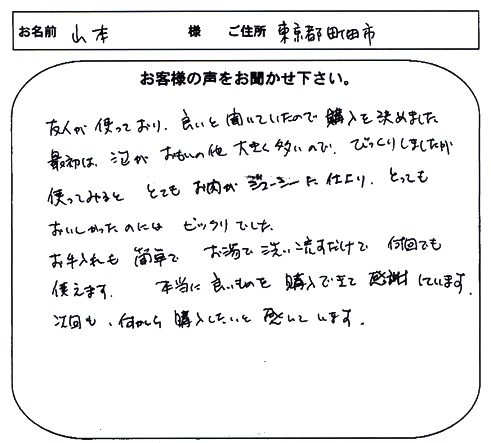 お名前 山本 様 ご住所 東京都町田市
お客様の声をお聞かせ下さい。
友人が使っており、良いと聞いていたので購入を決めました
最初は、泡がおもいの他大きく多いので、びっくりしましたが
使ってみると とてもお肉がジューシーに仕上り、とっても
おいしかったのには ビックリでした。
お手入れも 簡単で お湯で洗い流すだけで 何回でも
使えます。 本当に良いものを購入できて感謝しています。
次回も、何かしら購入したいと思っています。